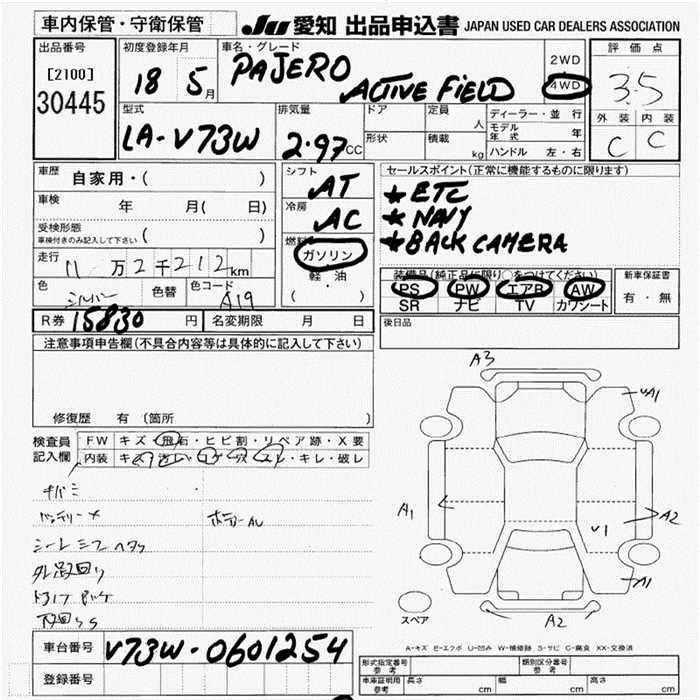 車内保管・守衛保管
JU 愛知 出品申込書 JAPAN USED CAR DEALERS ASSOCIATION
出品番号
[2100]
30445
初度登録年月
18 5月
車名・グレード
PAJERO ACTIVE FIELD
2WD
4WD
評価点
3.5
外装 内装
C C
型式
LA-V73W
排気量
2.97CC
ドア
形状
定員
人
積載
kg
ディーラー・並行
モデル年式 年
ハンドル 左・右
車歴
自家用・( )
車検
年 月( 日)
受検形態
車検付きのみ記入して下さい ( )
走行
11万2千212km
色
シルバー
色替
色コード
A19
シフト
AT
冷房
AC
燃料
ガソリン
軽・油
( ・ )
セールスポイント(正常に機能するものに限ります)
★ETC
★NAVY
★BACK CAMERA
装備品(純正品に限り○をつけてください)
PS PW エアB AW
SR ナビ TV カワシート
新車保証書
有・無
R券 15830 円
名変期限 月 日
後日品
注意事項申告欄(不具合内容等は具体的に記入して下さい)
修復歴 有 (箇所 )
検査員記入欄
FW キズ・飛石・ヒビ割・リペア跡・X要
内装 キズ・キレ・破レ
キバミ
バッテリーメ
シートシワヘタリ
外装回り
下回りサS
A3
UA1
A1
A2
U1
A1
A2
スペア
A-キズ E-エクボ U-凹み W-補修跡 S-サビ C-腐食 XX-交換済
車台番号
V73W-0601254
登録番号
形式指定番号
参考
類別区分番号
参考
車庫証明用
参考
長さ cm
幅 cm
高さ cm